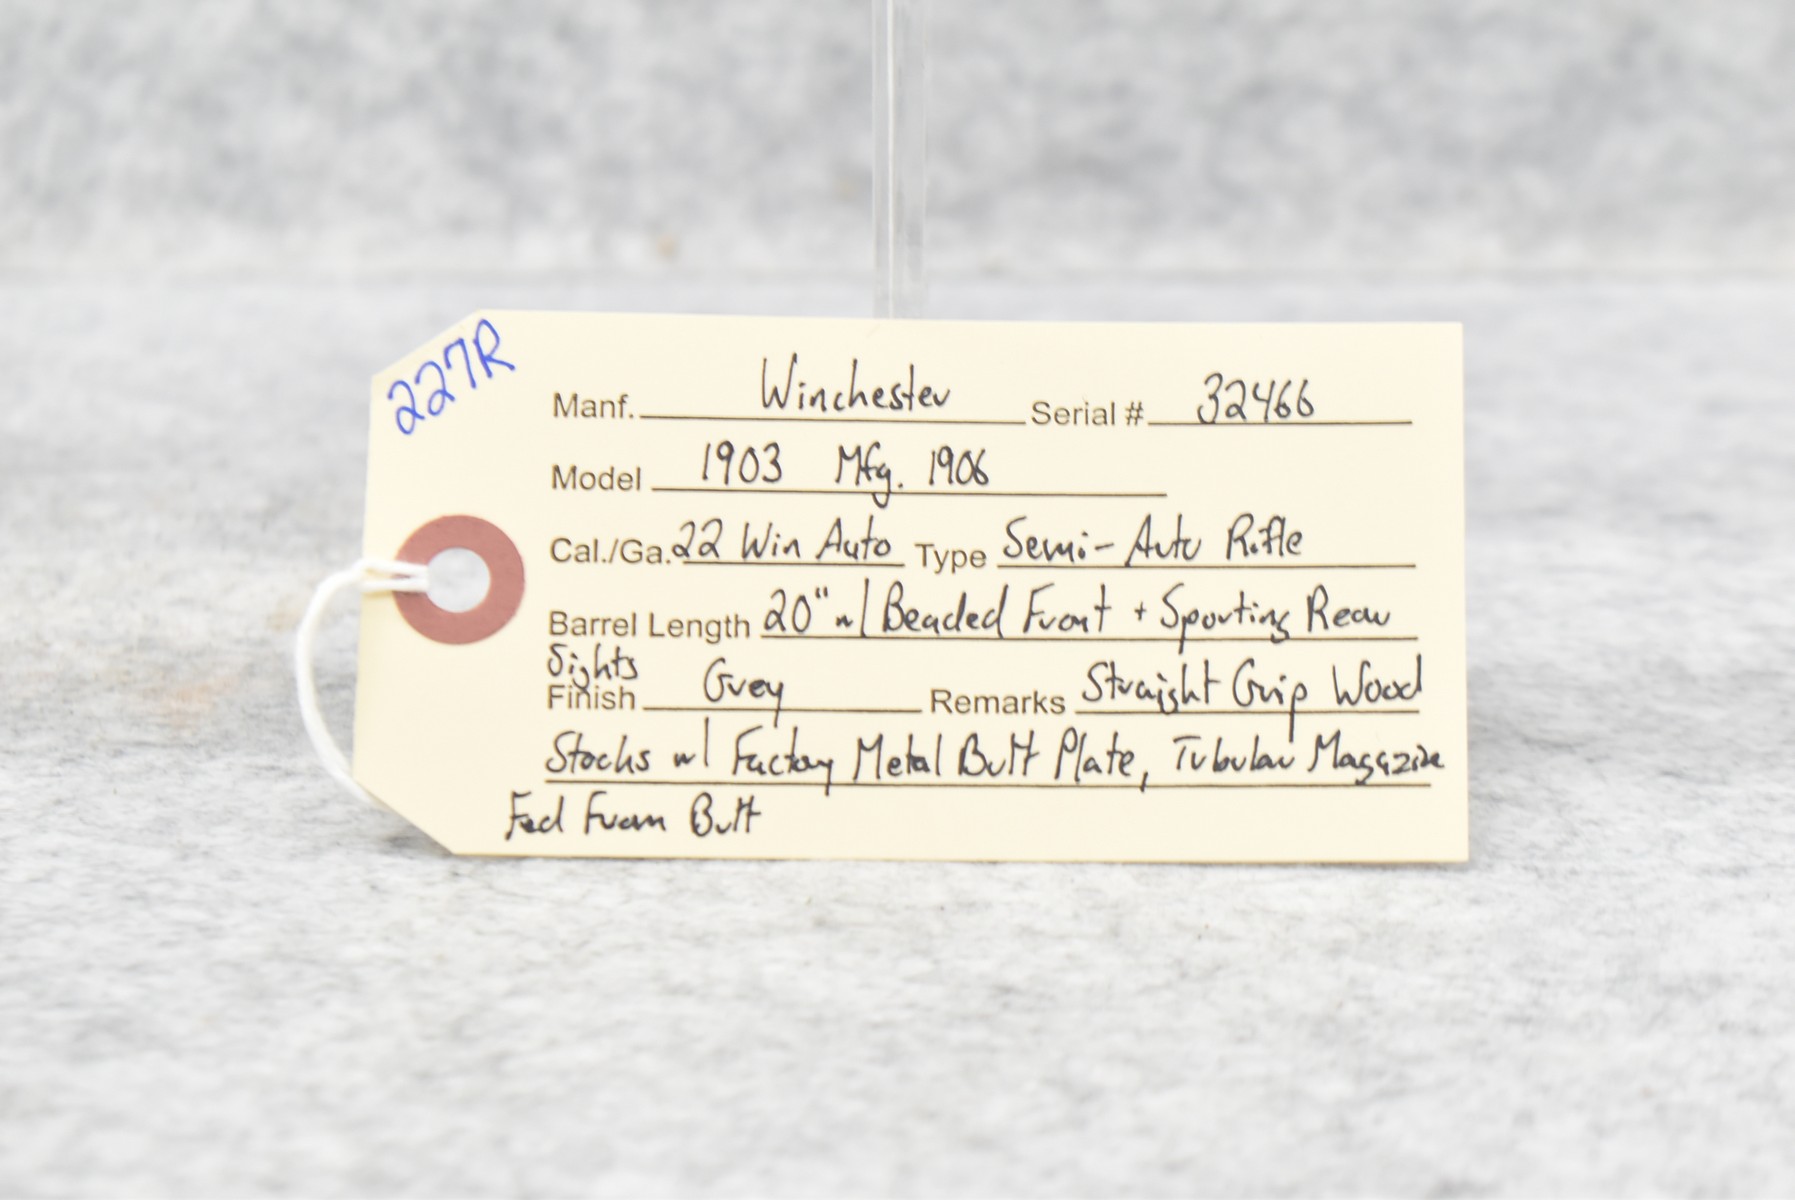 227R
Manf. Winchester Serial # 32466
Model 1903 Mfg. 1906
Cal./Ga. 22 Win Auto Type Semi-Auto Rifle
Barrel Length 20" w/ Beaded Front + Sporting Rear
Sights
Finish Grey Remarks Straight Grip Wood
Stocks w/ Factory Metal Butt Plate, Tubular Magazine
Fed From Butt